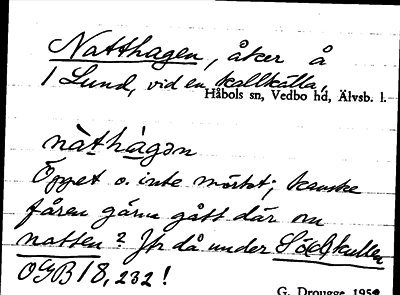 Natthagen, åker å
1 Lund, vid en kallkälla,
Håbols sn, Vedbo hd, Älvsb. l.
nàthàgən
Öppet o. inte mörkt; kanske
fåren gärna gått där om
natten? Jfr då under Söd, kullen
OGB 18, 232!
G. Drougge 1959